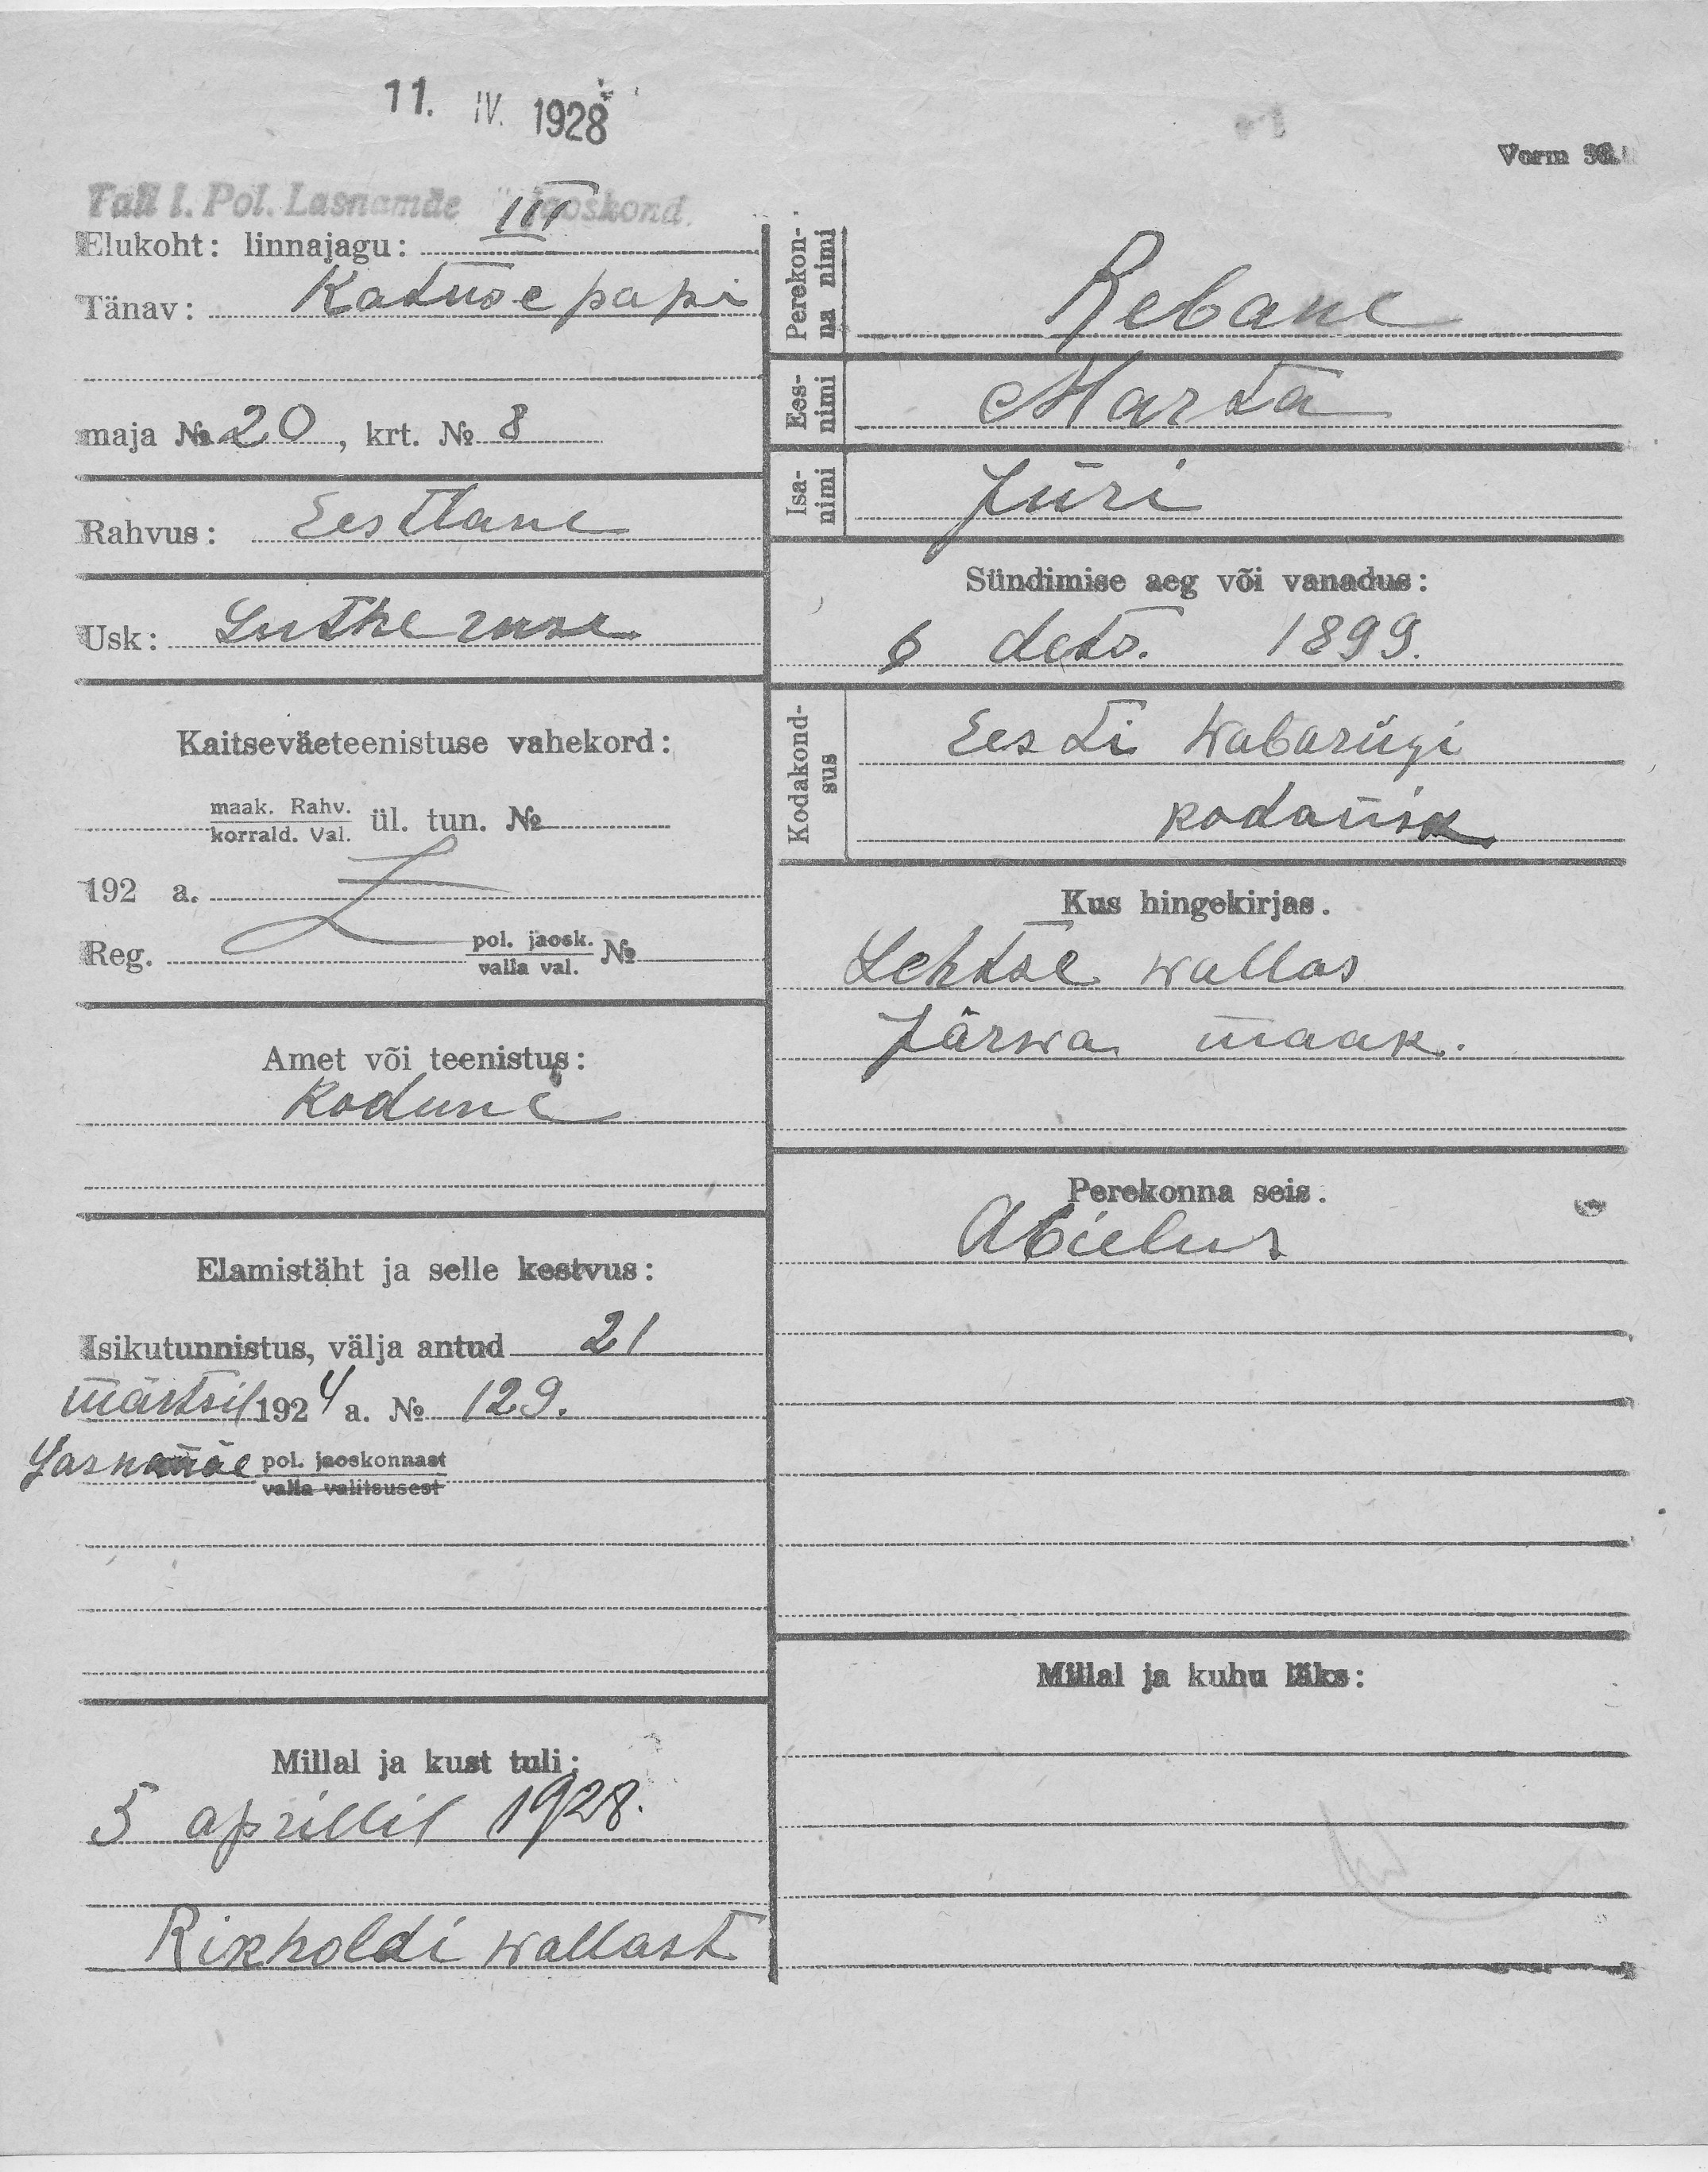 11. IV. 1928
Vorm
Tall l. Pol. Lasnamäe jaoskond.
Elukoht: linnajagu: III
Tänav: Katuse papi
maja № 20, krt. № 8
Rahvus: Eestlane
Usk: Lutheruse
Kaitseväeteenistuse vahekord:
maak. Rahv.
korrald. Val. ül. tun. №
192 a.
Reg. pol. jaosk. №
valla val.
Amet või teenistus:
Kodune
Elamistäht ja selle kestvus:
Isikutunnistus, välja antud 21
märtsil 1924 a. № 129.
Lasnamäe pol. jaoskonnast
valla valitsusest
Millal ja kust tuli:
5 aprillil 1928.
Rikholdi wallast
Perekon-
na nimi
Rebane
Ees-
nimi
Marta
Isa-
nimi
Jüri
Sündimise aeg või vanadus:
6 dets. 1899.
Kodakond-
sus
Eesti Wabariigi
kodanik
Kus hingekirjas.
Lehtse wallas
Järwa maak.
Perekonna seis.
Abielus
Millal ja kuhu läks: